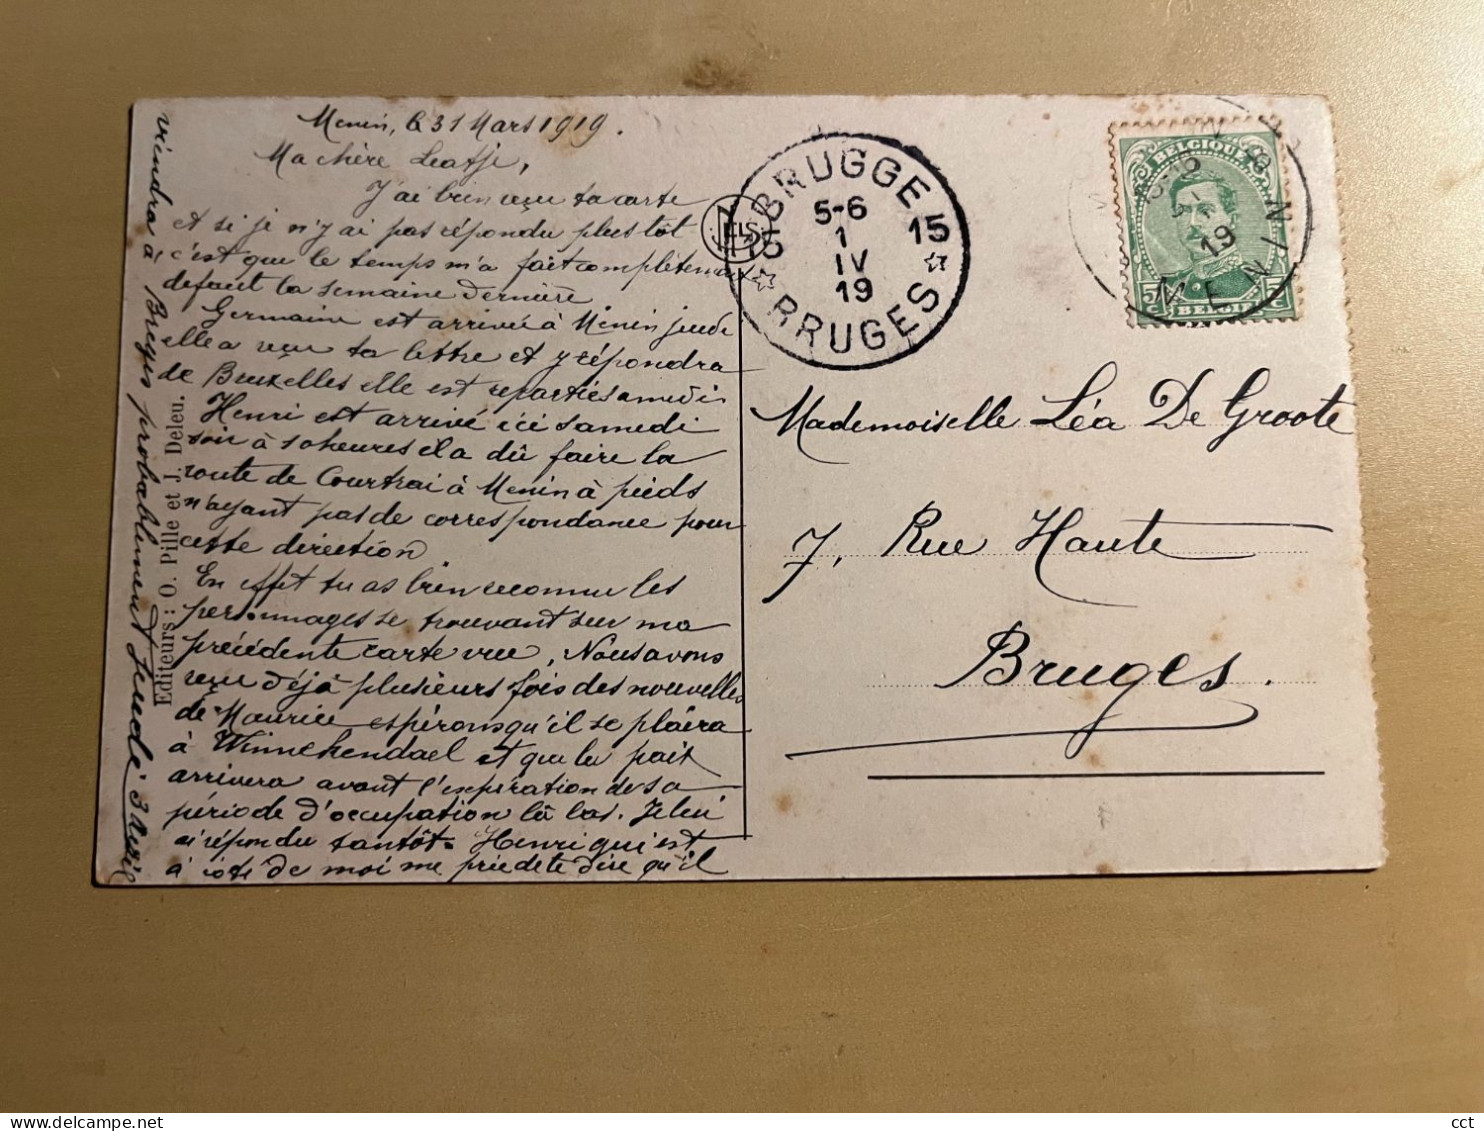 Menin, le 31 Mars 1919.
Ma chère Leatje,
J'ai bien reçu ta carte
et si je n'y ai pas répondu plus tôt
c'est que le temps m'a fait complètement
defaut la semaine dernière
Germaine est arrivée à Menin jeudi
elle a reçu ta lettre et y répondra
de Bruxelles elle est repartie samedi
Henri est arrivé ici samedi
soir à 10 heures il a dû faire la
route de Courtrai à Menin à pieds
n'ayant pas de correspondance pour
cette direction
En effet tu as bien reconnu les
personnages se trouvant sur ma
précédente carte vue, Nous avons
reçu déjà plusieurs fois des nouvelles
de Maurice espérons qu'il se plaira
à Winnekendael et que la paix
arrivera avant l'expiration de sa
période d'occupation là bas. Je lui
ai répondu tantôt. Henri qui est
à côté de moi me prie de te dire qu'il
viendra à Bruges probablement jeudi 3 avril
Editeurs: O. Pille et J. Deleu.
NELS
BRUGGE
15 15
5-6
1
IV
19
BRUGES
BELGIQUE
5 C
BELGIË
MENIN
19
MENEN
Mademoiselle Léa De Groote
7, Rue Haute
Bruges.
delcampe.net
cct